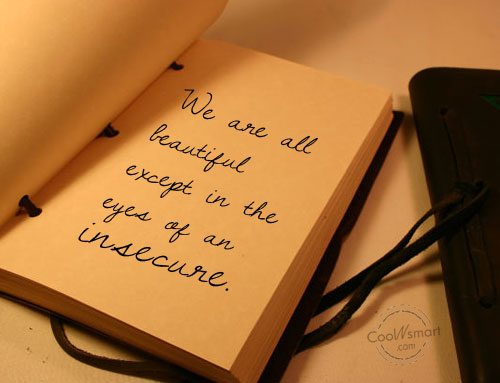 We are all
beautiful
except in the
eyes of an
insecure.
CooWsmart
.com